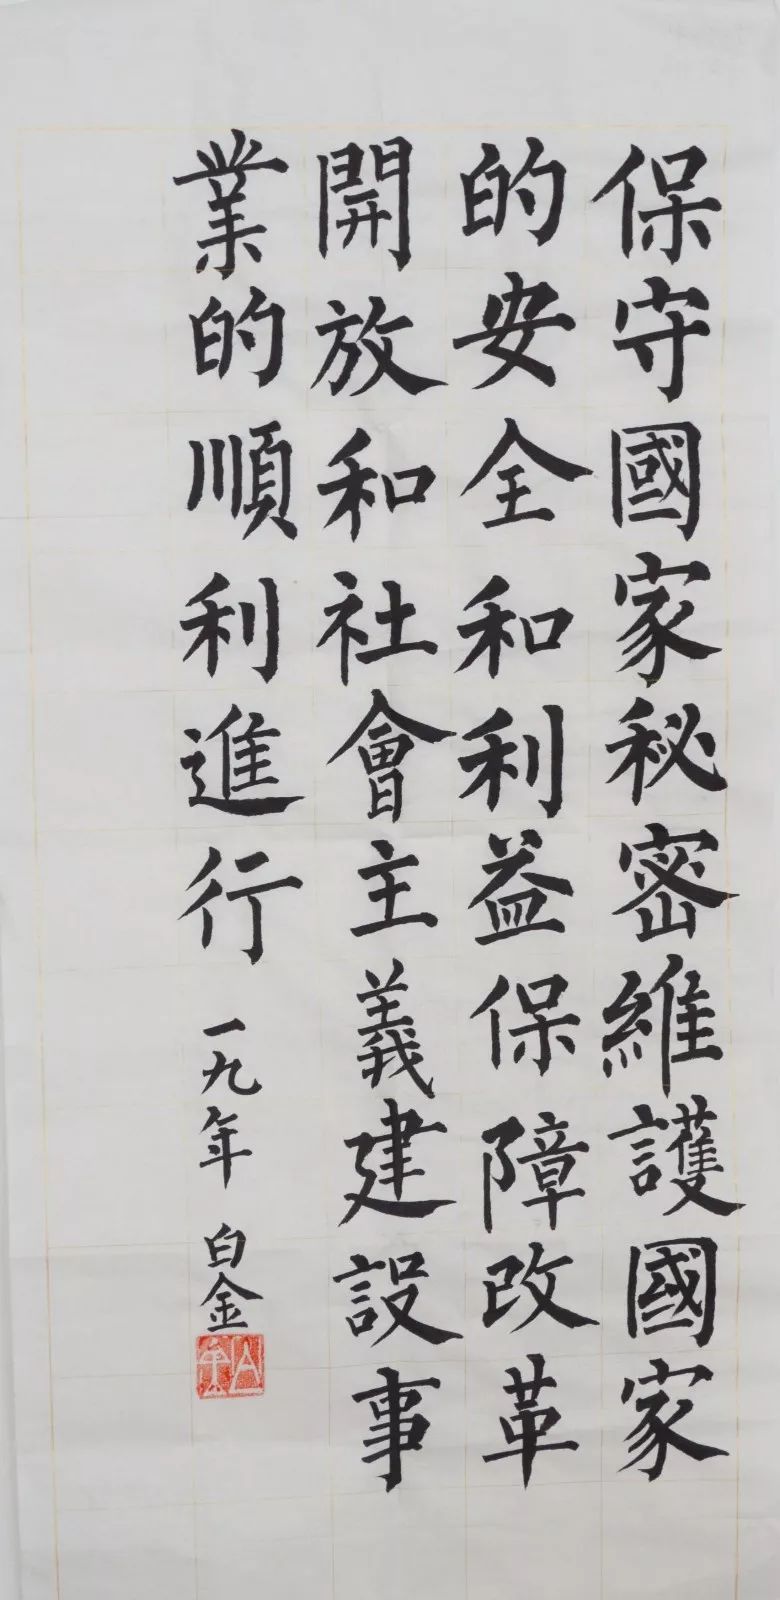 保守國家秘密維護國家
的安全和利益保障改革
開放和社會主義建設事
業的順利進行 一九年 白金